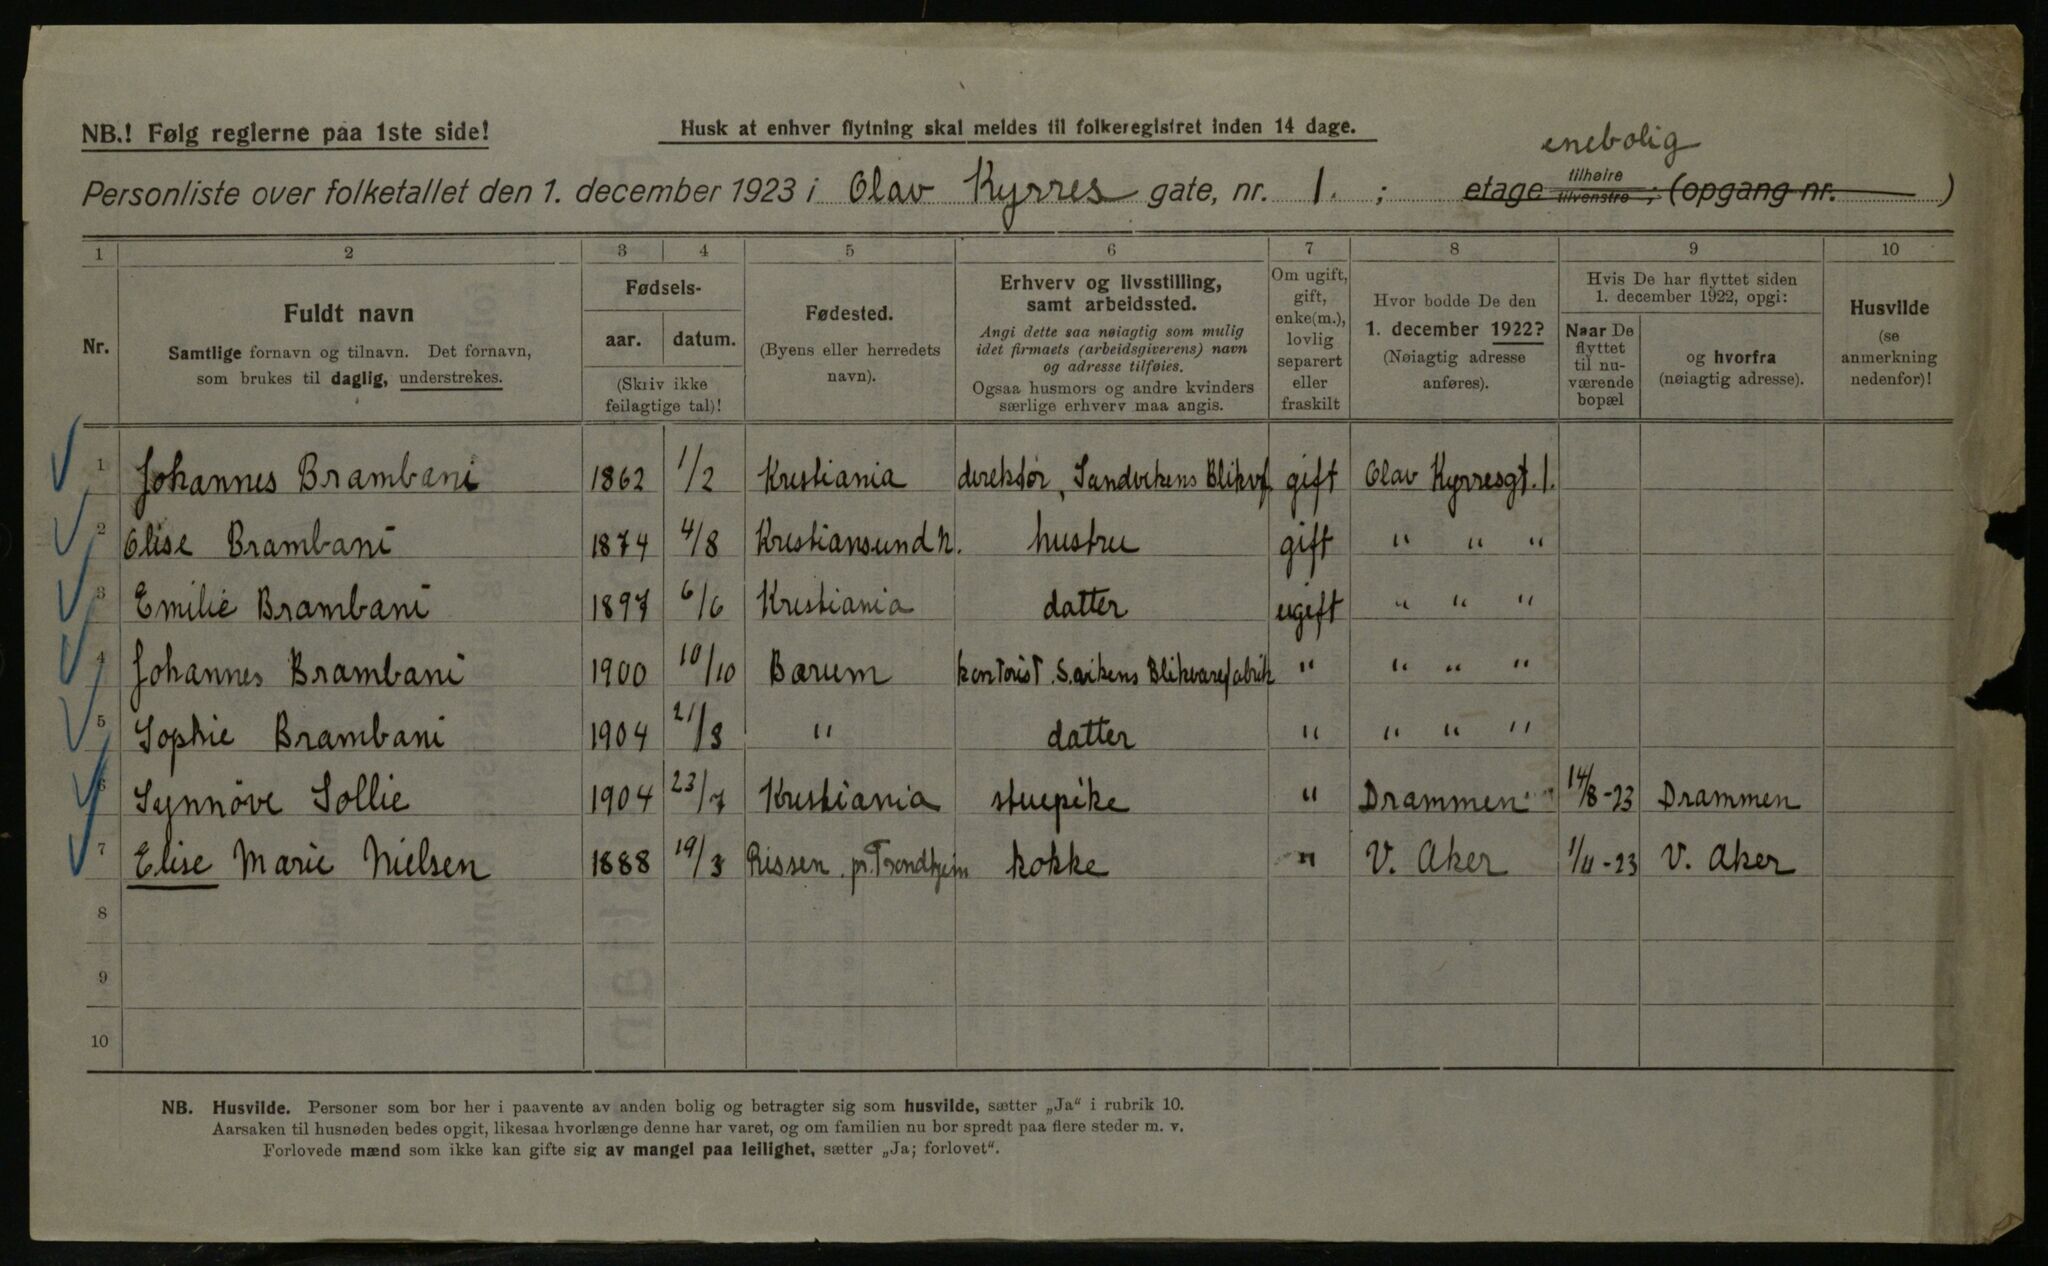 NB.! Følg reglerne paa 1ste side!
Husk at enhver flytning skal meldes til folkeregistret inden 14 dage.
enebolig
Personliste over folketallet den 1. december 1923 i Olav Kyrres gate, nr. 1. ; etage tilhøire tilvenstre ; (opgang nr. )
1 2 3 4 5 6 7 8 9 10
Nr.
Fuldt navn
Samtlige fornavn og tilnavn. Det fornavn,
som brukes til daglig, understrekes.
Fødsels-
aar. datum.
(Skriv ikke
feilagtige tal)!
Fødested.
(Byens eller herredets
navn).
Erhverv og livsstilling,
samt arbeidssted.
Angi dette saa nøiagtig som mulig
idet firmaets (arbeidsgiverens) navn
og adresse tilføies.
Ogsaa husmors og andre kvinders
særlige erhverv maa angis.
Om ugift,
gift,
enke(m.),
lovlig
separert
eller
fraskilt
Hvor bodde De den
1. december 1922?
(Nøiagtig adresse
anføres).
Hvis De har flyttet siden
1. december 1922, opgi:
Naar De
flyttet
til nu-
værende
bopæl
og hvorfra
(nøiagtig adresse).
Husvilde
(se
anmerkning
nedenfor)!
1 Johannes Brambani 1862 1/2 Kristiania direktør, Sandvikens Blikvf. gift Olav Kyrresgt. 1.
2 Elise Brambani 1874 4/8 Kristiansund N. hustru gift " " "
3 Emilie Brambani 1897 6/6 Kristiania datter ugift " " "
4 Johannes Brambani 1900 10/10 Bærum kontorist S.vikens Blikvarefabrik " " " "
5 Sophie Brambani 1904 21/3 " datter " " " "
6 Synnöve Sollie 1904 23/7 Kristiania stuepike " Drammen 14/8-23 Drammen
7 Elise Marie Nielsen 1888 19/3 Rissen pr. Trondhjem kokke " V. Aker 1/11-23 V. Aker
8
9
10
NB. Husvilde. Personer som bor her i paavente av anden bolig og betragter sig som husvilde, sætter „Ja“ i rubrik 10.
Aarsaken til husnøden bedes opgit, likesaa hvorlænge denne har varet, og om familien nu bor spredt paa flere steder m. v.
Forlovede mænd som ikke kan gifte sig av mangel paa leilighet, sætter „Ja; forlovet“.